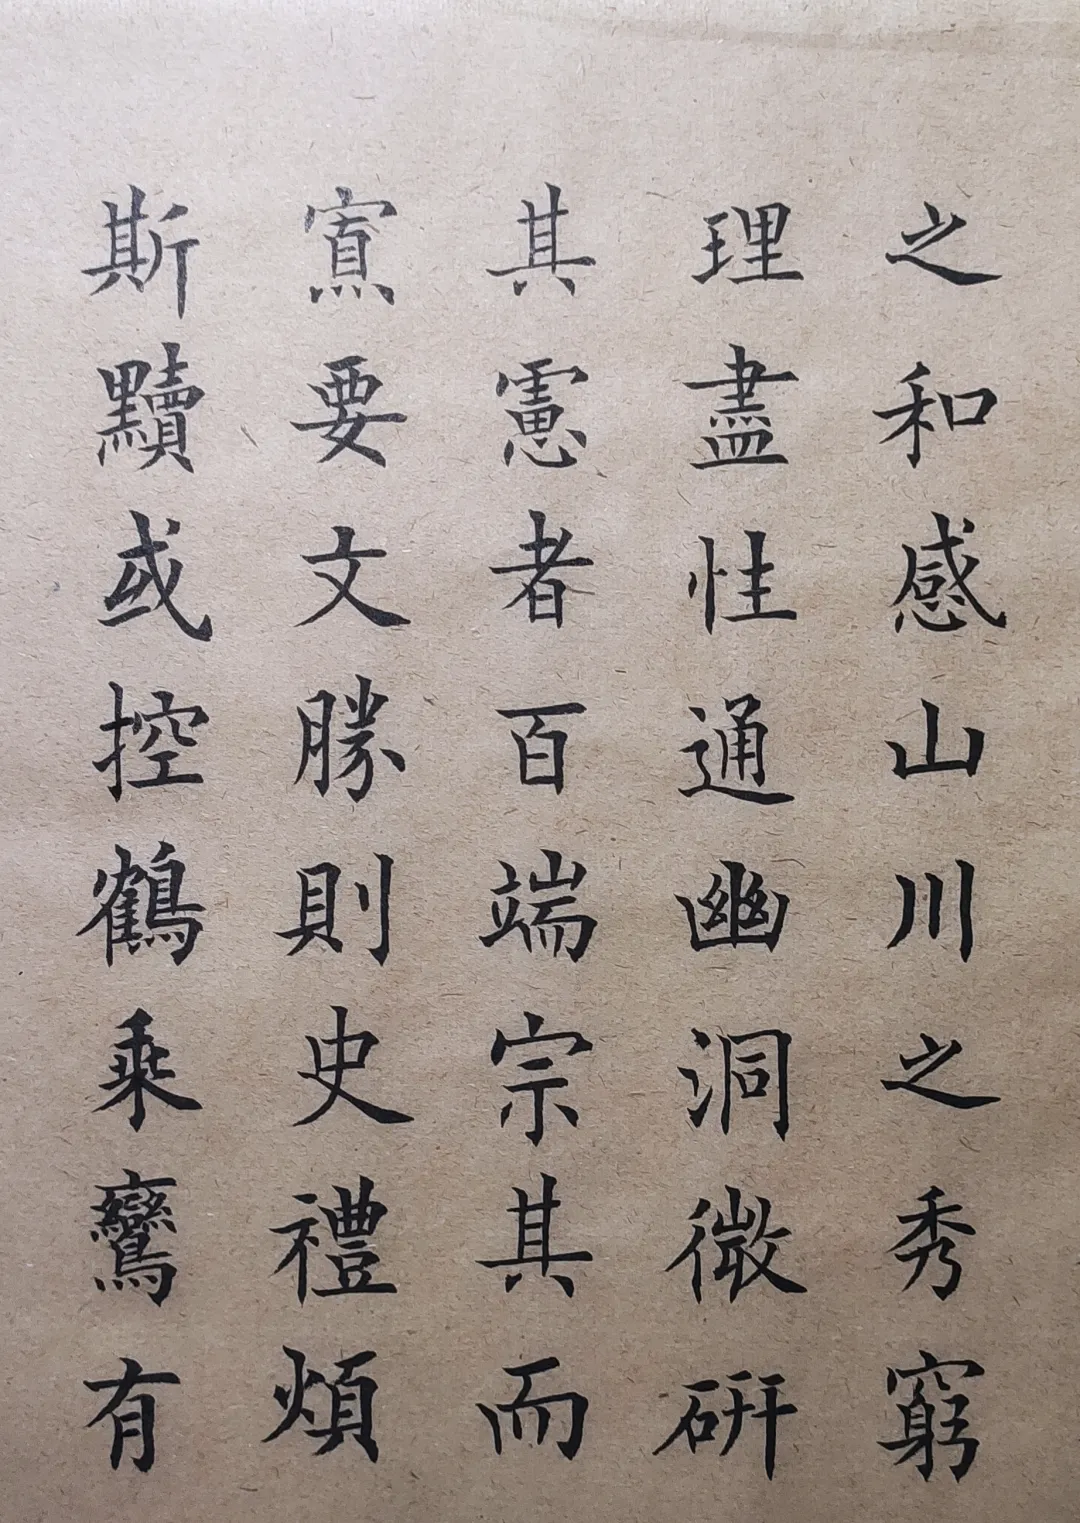 之和感山川之秀窮
理盡性通幽洞微研
其慮者百端宗其而
寡要文勝則史禮煩
斯黷或控鶴乘鸞有